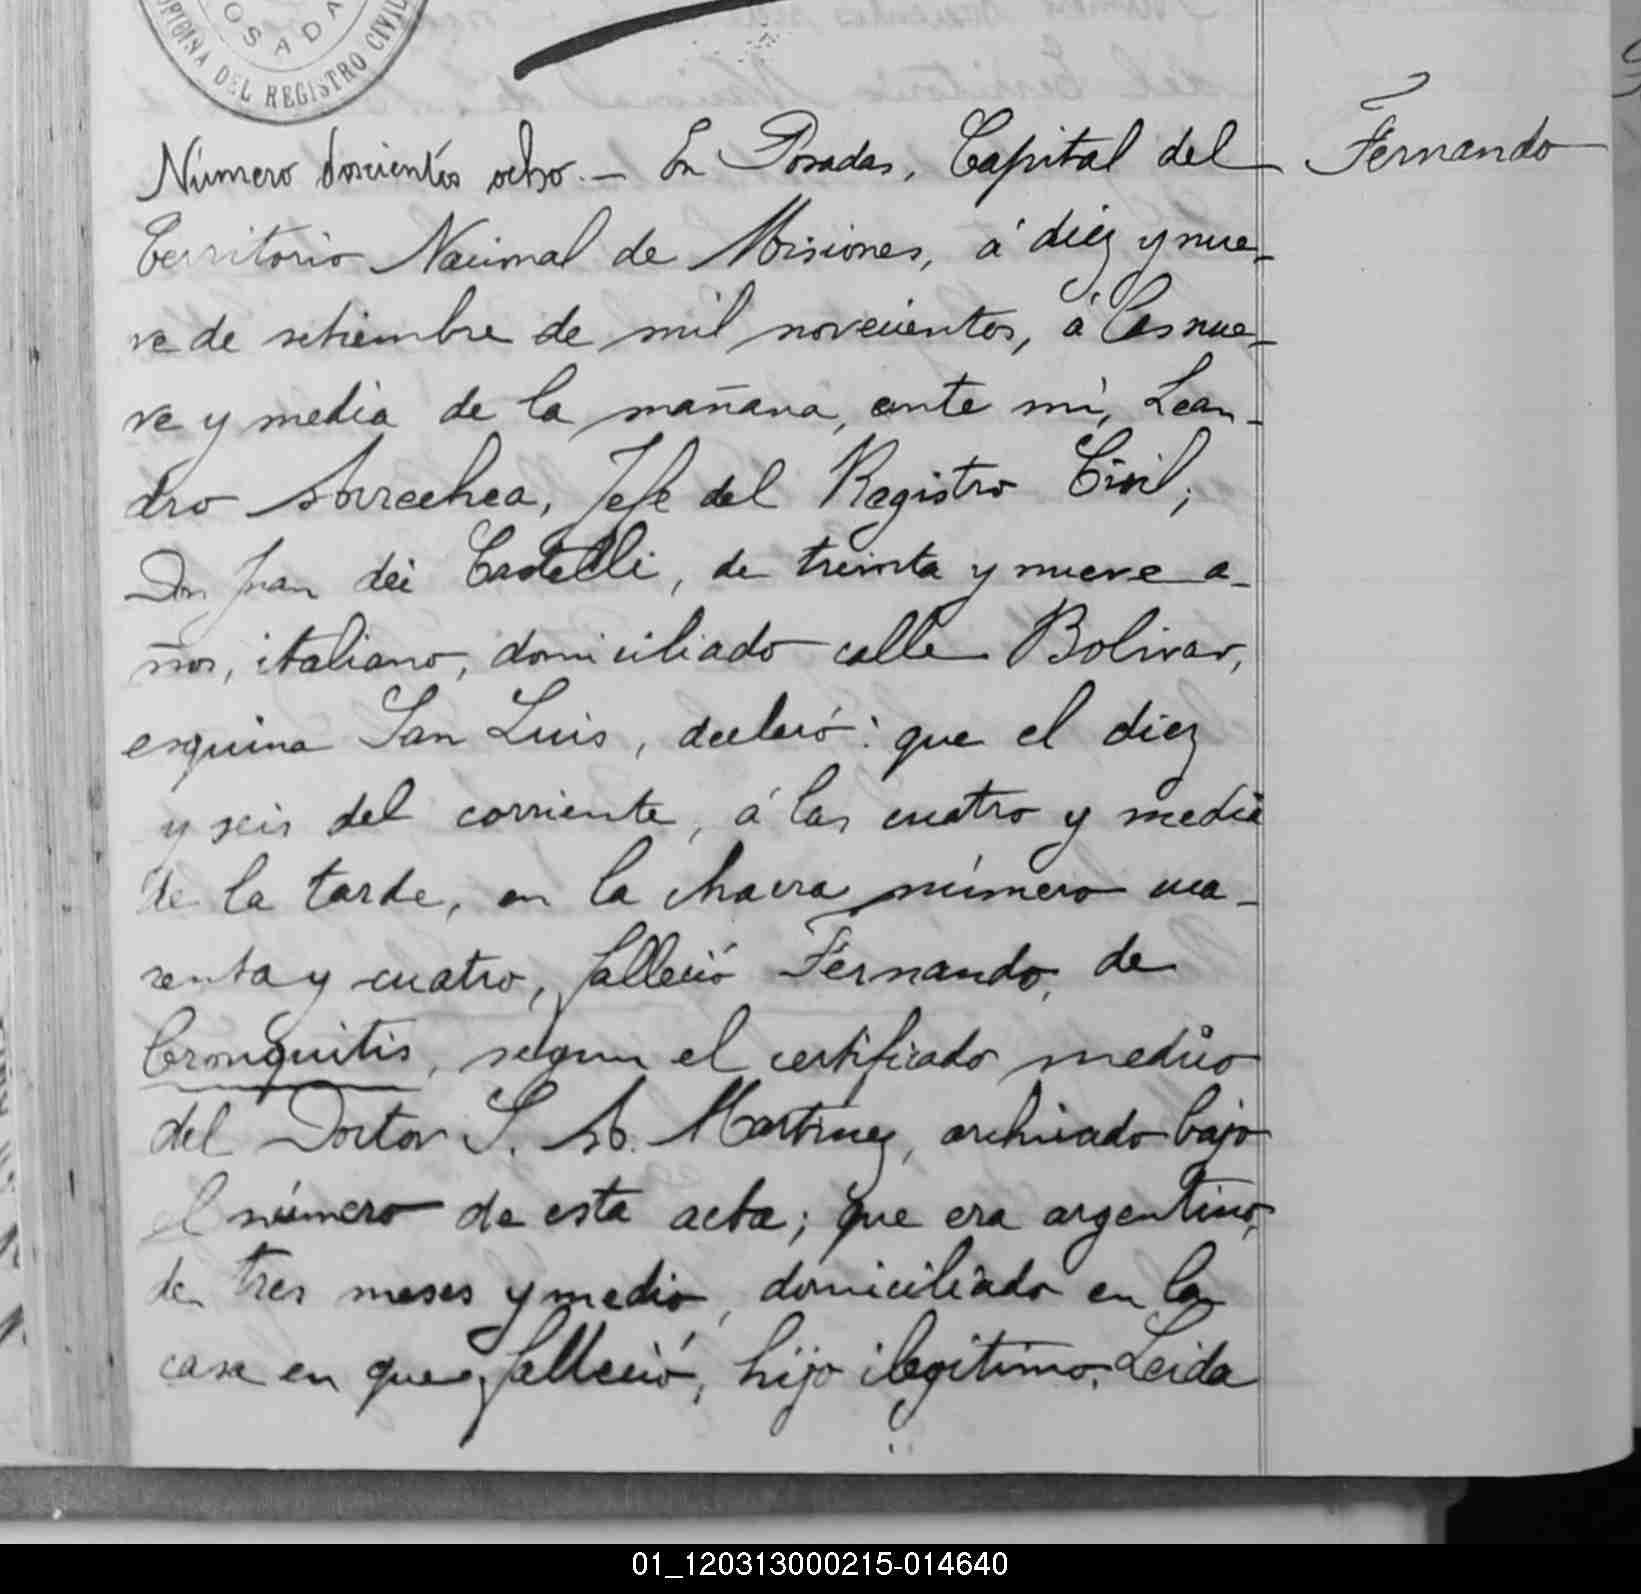 POSADA
OFICINA DEL REGISTRO CIVIL
Número doscientos ocho.— En Posadas, Capital del
Fernando
Territorio Nacional de Misiones, á diez y nue-
ve de setiembre de mil novecientos, á las nue-
ve y media de la mañana, ante mí, Lean-
dro Arrechea, Jefe del Registro Civil;
Don Juan dei Castelli, de treinta y nueve a-
ños, italiano, domiciliado calle Bolivar,
esquina San Luis, declaró: que el diez
y seis del corriente, á las cuatro y media
de la tarde, en la chacra número cua-
renta y cuatro, falleció Fernando, de
bronquitis, segun el certificado medico
del Doctor S. A. Martinez, archivado bajo
el número de esta acta; que era argentino,
de tres meses y medio, domiciliado en la
casa en que falleció, hijo ilegitimo. Leida
01_120313000215-014640